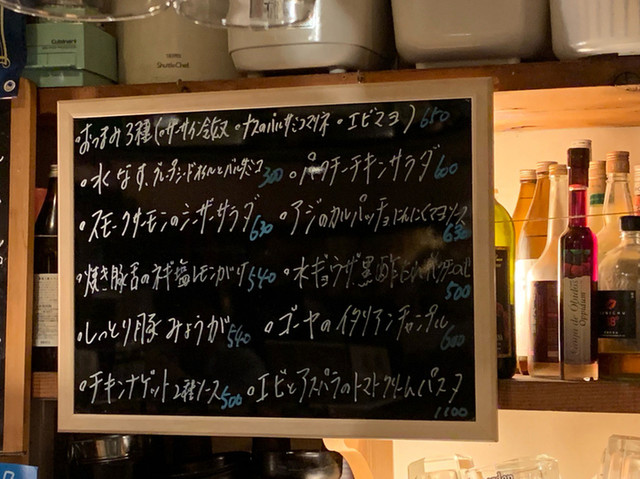 Cuisinart
Shuttle Chef
・おつまみ3種(・ザーサイ冷奴 ・ナスのバルサミコマリネ ・エビマヨ) 650
・水なす、グレープシードオイルとバルサミコ 300 ・パクチーチキンサラダ 600
・スモークサーモンのシーザーサラダ 630 ・アジのカルパッチョにんにくマヨソース 630
・焼き豚舌のネギ塩レモンがけ 540 ・水ギョウザ黒酢と 500
・しっとり豚みょうが 540 ・ゴーヤのイタリアンチャンプル 600
・チキンナゲット2種ソース 500 ・エビとアスパラのトマトクリームパスタ 1100